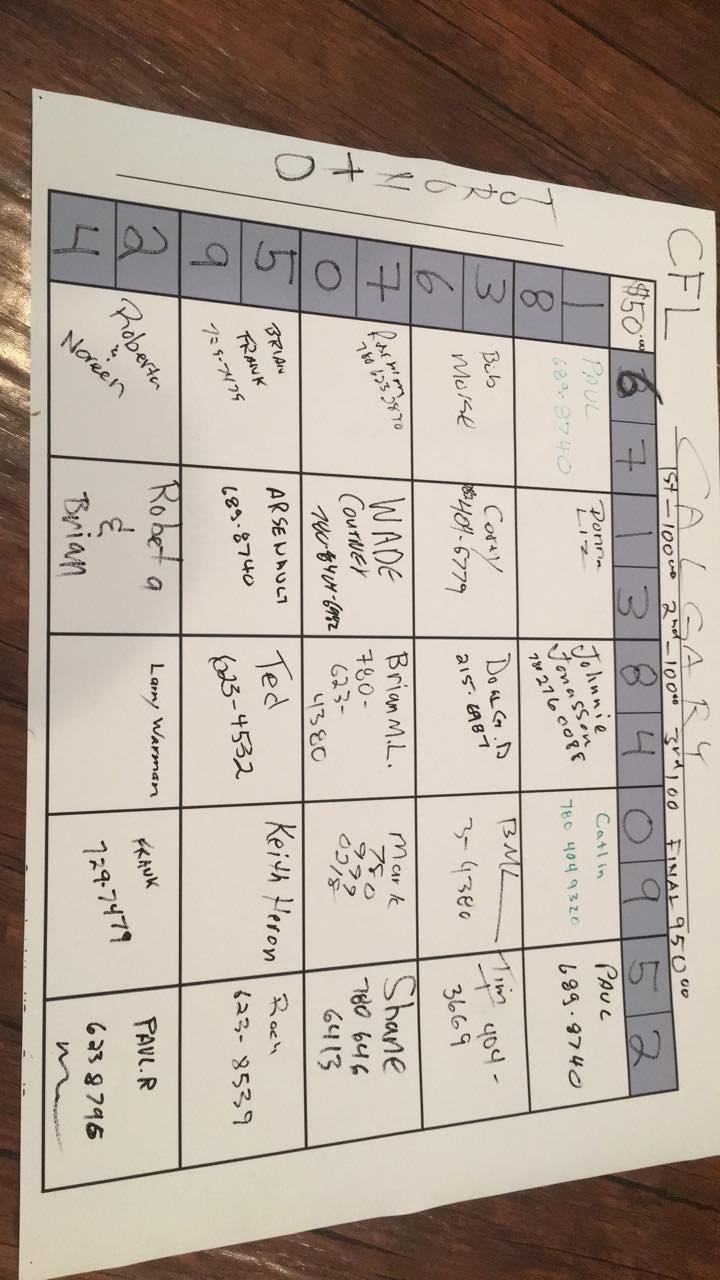 CFL
CALGARY
1st-100.00 2nd-100.00 3rd 100 FINAL 950.00
TORONTO
$50.00 6 7 1 3 8 4 0 9 5 2
1
8
PAUL
689.8740
Donna
Liz
Johnnie
Jonasson
780 276 0088
Catlin
780 404 9320
PAUL
689.8740
3
6
Bib
Morse
404-6779
Doug.D
215-8987
BML
3-4380
Tim 404-
3669
7
0
780 623 2870
WADE
COURTNEY
Brian M.L.
780-
623-
4380
Mark
780
999
0218
Shane
780 646
6413
5
9
BRIAN
FRANK
729-7479
ARSENAULT
689.8740
Ted
623-4532
Keith Heron
Roch
623-8539
2
4
Roberta
&
Noreen
Roberta
&
Brian
Larry Warman
FRANK
729-7479
PAUL.R
6238796